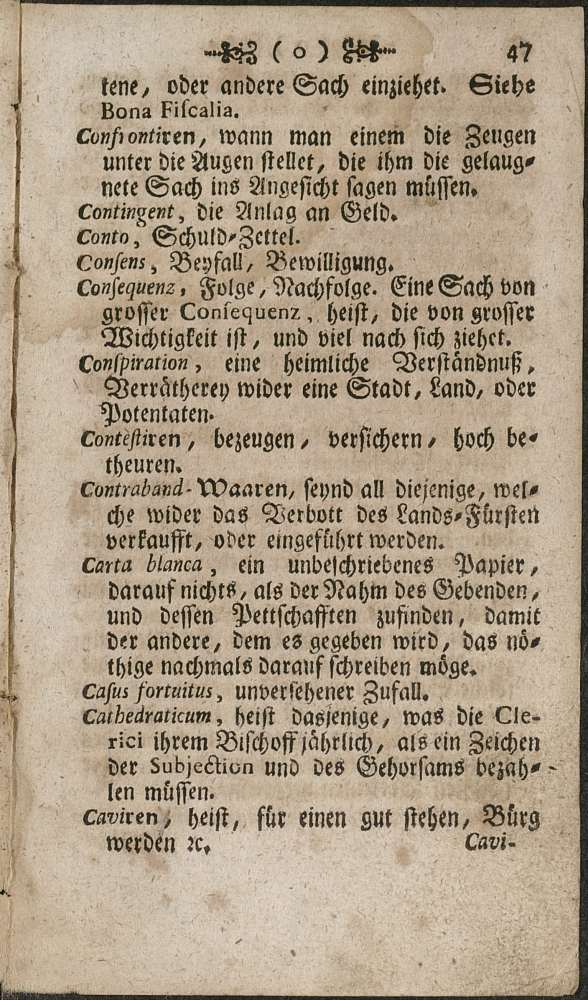 ( o ) 47
tene, oder andere Sach einziehet. Siehe
Bona Fiscalia.
Confrontiren, wann man einem die Zeugen
unter die Augen stellet, die ihm die gelaug-
nete Sach ins Angesicht sagen müssen.
Contingent, die Anlag an Geld.
Conto, Schuld-Zettel.
Consens, Beyfall, Bewilligung.
Consequenz, Folge, Nachfolge. Eine Sach von
grosser Consequenz, heist, die von grosser
Wichtigkeit ist, und viel nach sich ziehet.
Conspiration, eine heimliche Verständnuß,
Verrätherey wider eine Stadt, Land, oder
Potentaten.
Contestiren, bezeugen, versichern, hoch be-
theuren.
Contraband-Waaren, seynd all diejenige, wel-
che wider das Verbott des Lands-Fürsten
verkaufft, oder eingeführt werden.
Carta blanca, ein unbeschriebenes Papier,
darauf nichts, als der Nahm des Gebenden,
und dessen Pettschafften zufinden, damit
der andere, dem es gegeben wird, das nö-
thige nachmals darauf schreiben möge.
Casus fortuitus, unversehener Zufall.
Cathedraticum, heist dasjenige, was die Cle-
rici ihrem Bischoff jährlich, als ein Zeichen
der Subjection und des Gehorsams bezah-
len müssen.
Caviren, heist, für einen gut stehen, Bürg
werden ꝛc.
Cavi-